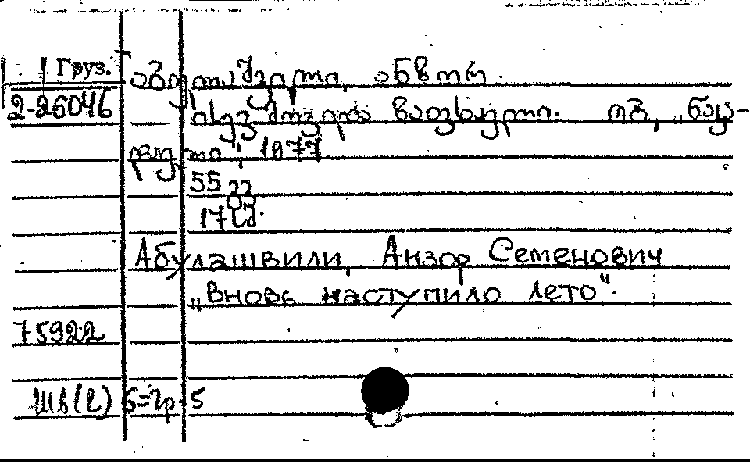 Груз.
აბულაშვილი, ანზორ
2-26046
ისევ მოვიდა ზაფხული. თბ., „ნაკა-
დული", 1977
55 გვ
17 სმ.
Абулашвили, Анзор Семенович
„Вновь наступило лето".
75922
Шв(2) Б=2р-5